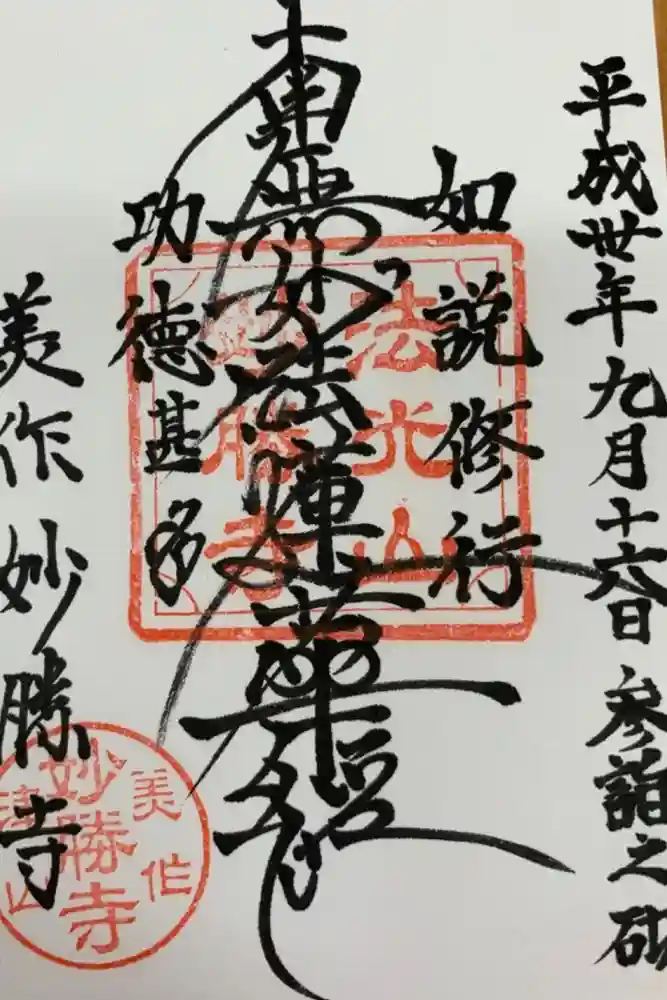 平成丗年九月十六日 参詣之砌
如説修行
南無妙法蓮華経
功徳甚多
美作 妙勝寺
法光山
妙勝寺
美作
妙勝寺
津山